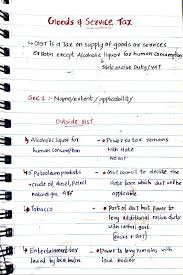 Goods & Service Tax
→ GST is a Tax on supply of goods or services
or both except Alcoholic liquor for human consumption
state excise Duty/VAT
Sec 1 :- Name/extent/applicability
Outside GST
↳ Alcoholic liquor for human consumption → Power to tax remains with state
NO GST
↳ 5 Petroleum products → GST council to decide the date from which GST will be applicable
crude oil, diesel, Petrol
natural gas, ATF
↳ Tobacco → Part of GST but power to levy additional excise duty with central govt
↳ Entertainment tax levied by local bodies → Power to levy remains with local bodies